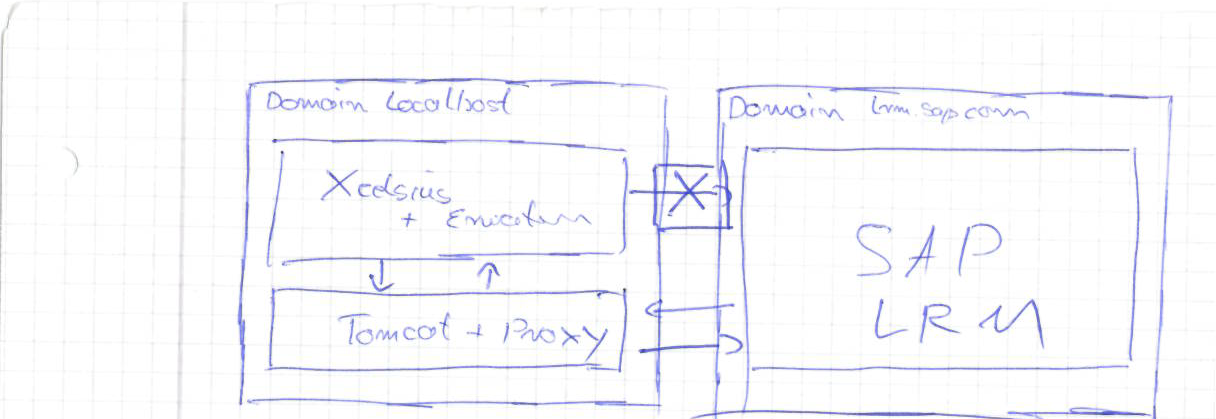 Domain Localhost
Xcelsius
+
Tomcat + Proxy
Domain lrm.sap.com
SAP
LRM